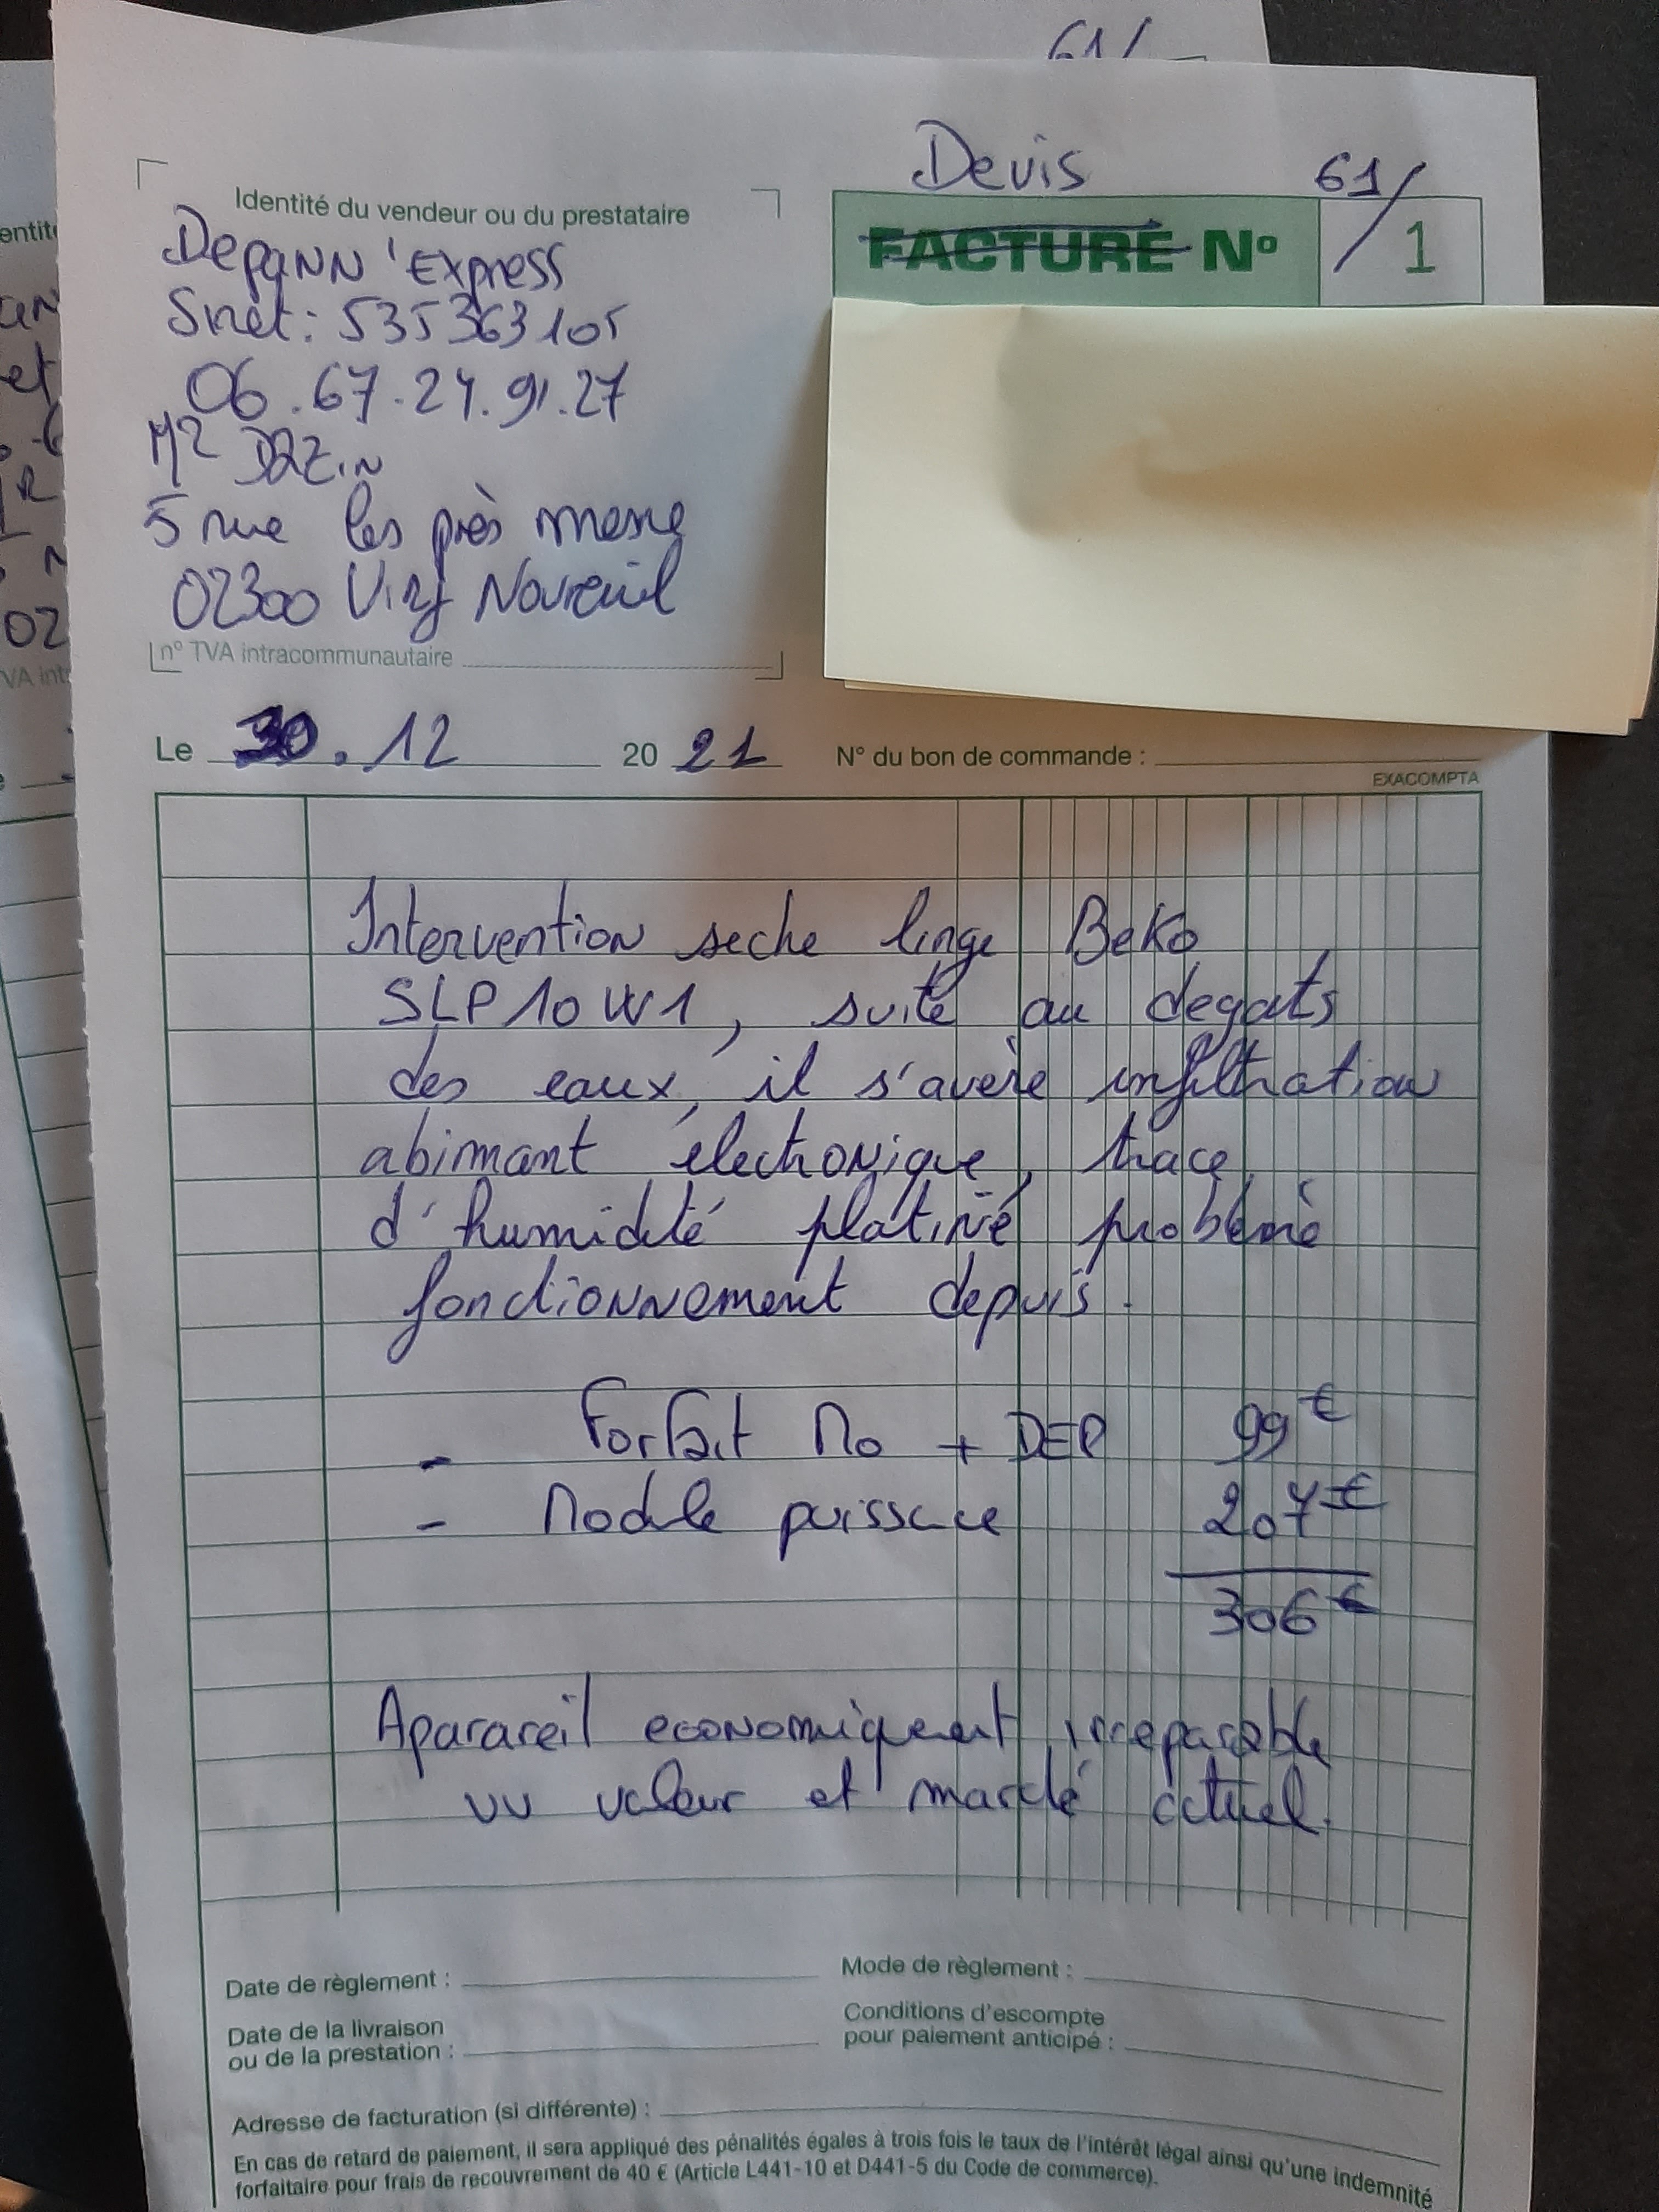 61/
Devis 61/
Identité du vendeur ou du prestataire
FACTURE N° 1
Depann'Express
Siret: 535363105
06.67.24.91.27
Mr DAZIN
5 rue les près
02300 Viry Noureuil
n° TVA intracommunautaire
Le 30.12 2021
N° du bon de commande :
EXACOMPTA
Intervention seche linge Beko
SLP10W1, suite au degats
des eaux, il s'avère infiltration
abimant électronique, trace
d'humidité platine problème
fonctionnement depuis.
- Forfait Mo + DEP 99€
- Module puissance 207€
306€
Aparareil economiquement irreparable
vu valeur et marché actuel.
Date de règlement :
Mode de règlement :
Date de la livraison
ou de la prestation :
Conditions d'escompte
pour paiement anticipé :
Adresse de facturation (si différente) :
En cas de retard de paiement, il sera appliqué des pénalités égales à trois fois le taux de l'intérêt légal ainsi qu'une indemnité
forfaitaire pour frais de recouvrement de 40 € (Article L441-10 et D441-5 du Code de commerce).